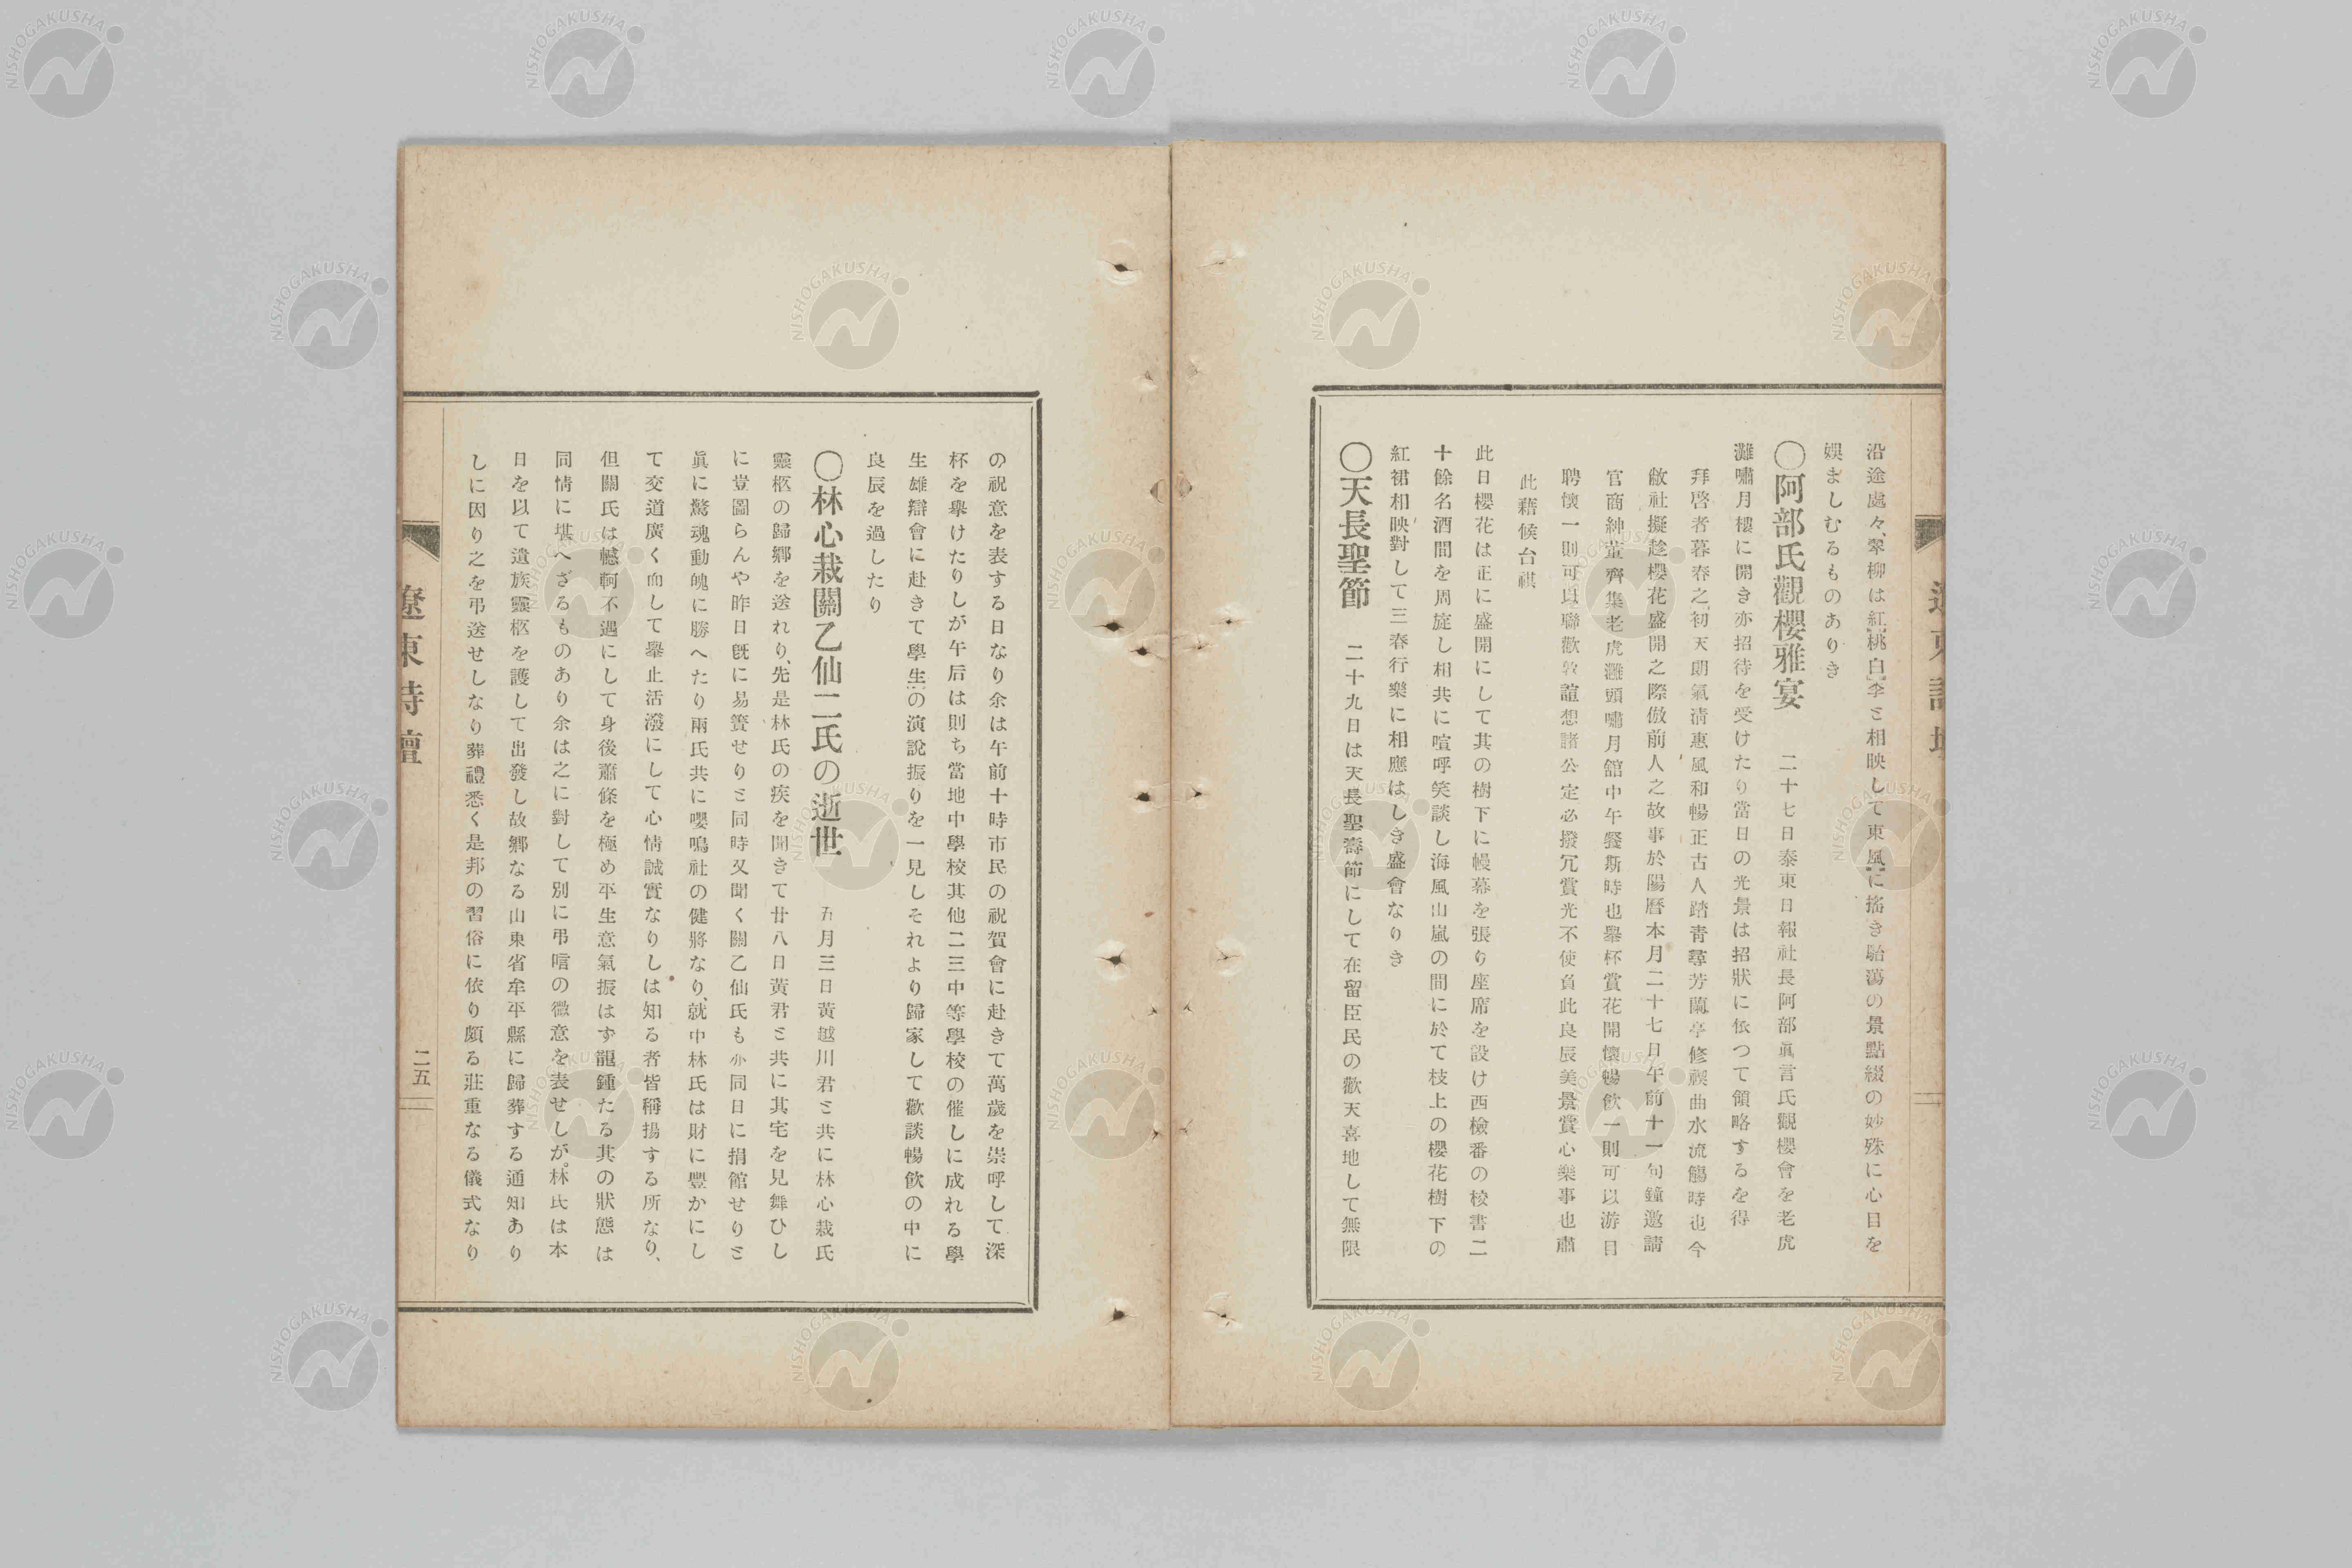 沿途處々、翠柳は紅桃白李と相映して東風に搖き駘蕩の景點綴の妙殊に心目を
娯ましむるものありき
〇阿部氏觀櫻雅宴　二十七日泰東日報社長阿部眞言氏觀櫻會を老虎
灘嘯月樓に開き亦招待を受けたり當日の光景は招狀に依つて領略するを得
拜啓者暮春之初天朗氣淸惠風和暢正古人踏靑尋芳蘭亭修禊曲水流觴時也今
敝社擬趁櫻花盛開之際倣前人之故事於陽曆本月二十七日午前十一句鐘邀請
官商紳董齊集老虎灘頭嘯月舘中午餐斯時也擧杯賞花開懷暢飮一則可以游目
聘懷一則可以聯歡敦誼想諸公定必撥冗賞光不使負此良辰美景賞心樂事也肅
此藉候台祺
此日櫻花は正に盛開にして其の樹下に幔幕を張り座席を設け西檢番の校書二
十餘名酒間を周旋し相共に喧呼笑談し海風山嵐の間に於て枝上の櫻花樹下の
紅裙相映對して三春行樂に相應はしき盛會なりき
〇天長聖節　二十九日は天長聖壽節にして在留臣民の歡天喜地して無限
の祝意を表する日なり余は午前十時市民の祝賀會に赴きて萬歲を崇呼して深
杯を擧けたりしが午后は則ち當地中學校其他二三中等學校の催しに成れる學
生雄辯會に赴きて學生の演說振りを一見しそれより歸家して歡談暢飮の中に
良辰を過したり
〇林心栽關乙仙二氏の逝世　五月三日黃越川君と共に林心栽氏
靈柩の歸鄕を送れり、先是林氏の疾を聞きて廿八日黃君と共に其宅を見舞ひし
に豈圖らんや昨日旣に易簀せりと同時又聞く關乙仙氏も亦同日に捐館せりと
眞に驚魂動魄に勝へたり兩氏共に嚶鳴社の健將なり、就中林氏は財に豐かにし
て交道廣く而して擧止活潑にして心情誠實なりしは知る者皆稱揚する所なり、
但關氏は轗軻不遇にして身後蕭條を極め平生意氣振はず龍鍾たる其の狀態は
同情に堪へざるものあり余は之に對して別に弔唁の微意を表せしが。林氏は本
日を以て遺族靈柩を護して出發し故鄕なる山東省牟平縣に歸葬する通知あり
しに因り之を弔送せしなり葬禮悉く是邦の習俗に依り頗る莊重なる儀式なり
遼東詩壇
二五